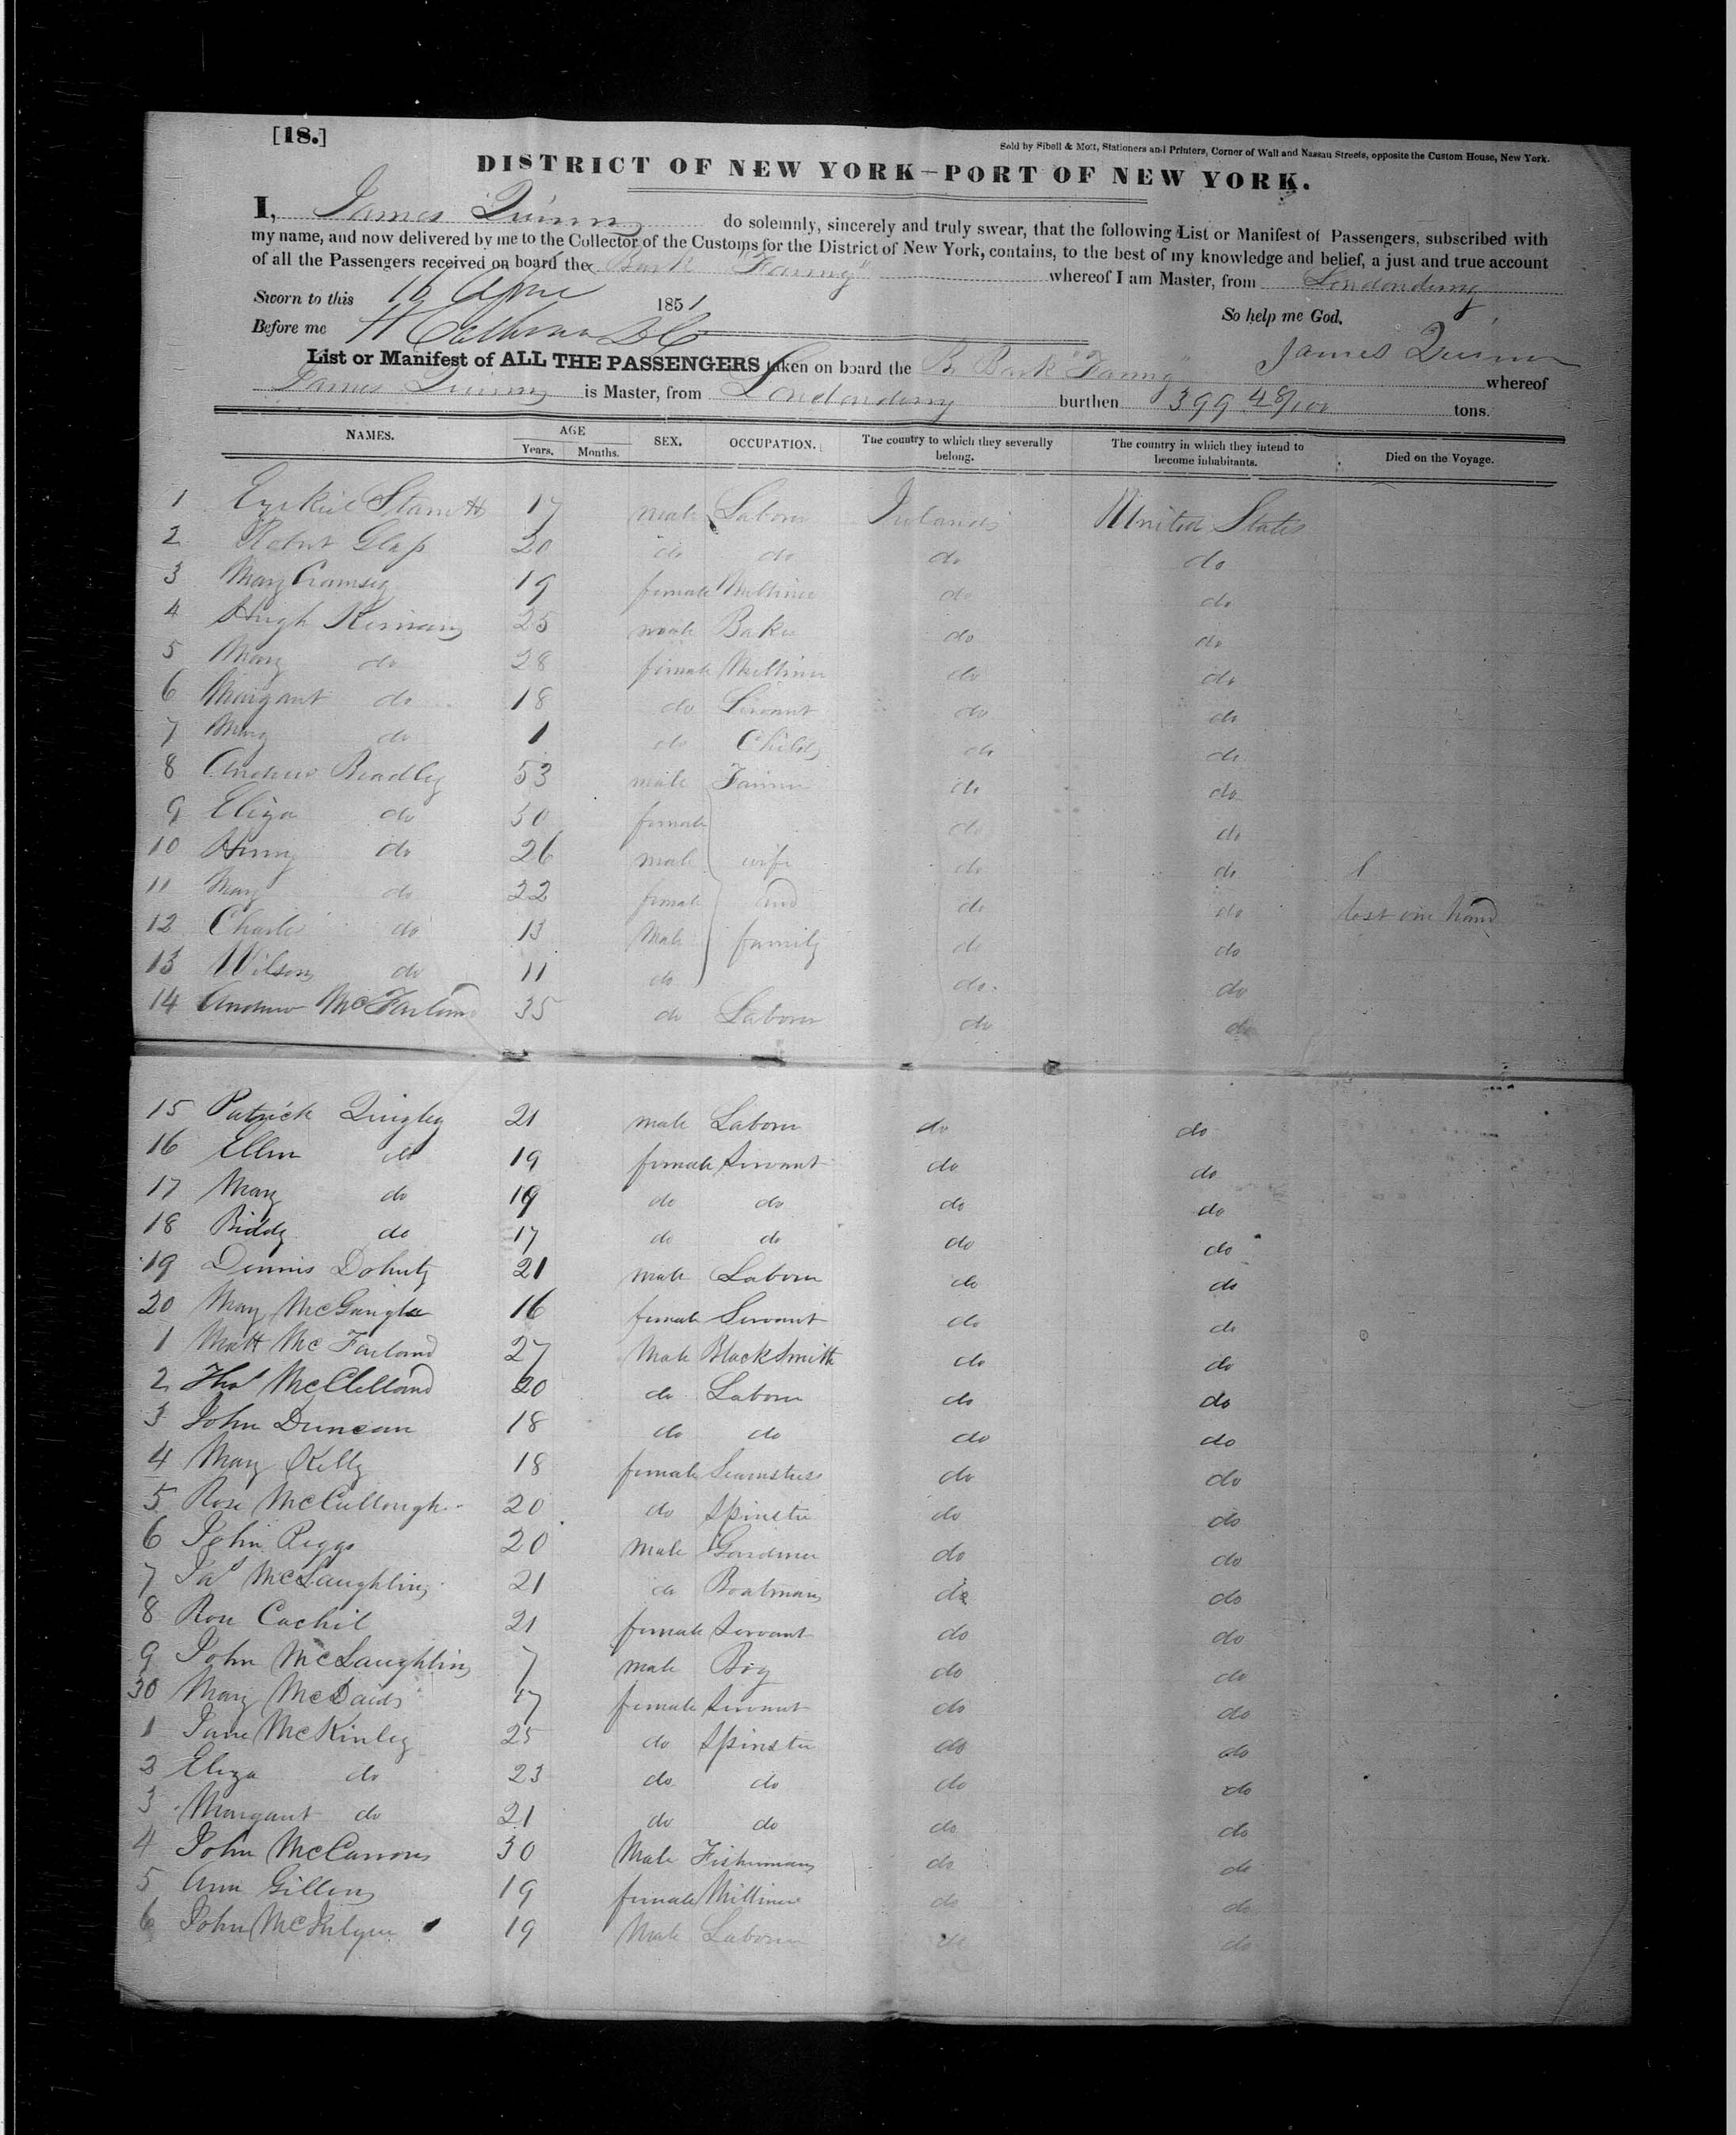 [18.]
Sold by Sibell & Mott, Stationers and Printers, Corner of Wall and Nassau Streets, opposite the Custom House, New York.
DISTRICT OF NEW YORK—PORT OF NEW YORK.
I, James Quinn do solemnly, sincerely and truly swear, that the following List or Manifest of Passengers, subscribed with
my name, and now delivered by me to the Collector of the Customs for the District of New York, contains, to the best of my knowledge and belief, a just and true account
of all the Passengers received on board the Bark "Fanny" whereof I am Master, from Londonderry
Sworn to this 16 April 1851 So help me God,
Before me James Quinn
List or Manifest of ALL THE PASSENGERS taken on board the Br Bark "Fanny" whereof
James Quinn is Master, from Londonderry burthen 399 48/100 tons.
NAMES. AGE Years. Months. SEX. OCCUPATION. The country to which they severally belong. The country in which they intend to become inhabitants. Died on the Voyage.
1 17 male Labour Ireland United States
2 Robert Glass 20 do do do do
3 Mary 19 female Milliner do do
4 Hugh 25 male Baker do do
5 Mary do 28 female Milliner do do
6 Margaret do 18 do Servant do do
7 Mary do 1 do Child do do
8 Andrew Bradley 53 male Farmer do do
9 Eliza do 30 female do do
10 Henry do 26 male wife do do
11 Mary do 22 female and do do lost one hand
12 Charles do 13 Male family do do
13 Wilson do 11 do do do
14 Andrew McFarland 35 do Labour do do
15 Patrick Quigley 21 male Labour do do
16 Ellen do 19 female Servant do do
17 Mary do 19 do do do do
18 Biddy do 17 do do do do
19 Dennis Doherty 21 male Labour do do
20 Mary 16 female Servant do do
1 Matt McFarland 27 Male BlackSmith do do
2 Thos McClelland 20 do Labour do do
3 John Duncan 18 do do do do
4 Mary Kelly 18 female Seamstress do do
5 Rose McCullough 20 do Spinster do do
6 John 20 male Gardener do do
7 Jas McLaughlin 21 do Boatman do do
8 Rose Cachil 21 female Servant do do
9 John McLaughlin 7 male Boy do do
30 Mary McDaid 17 female Servant do do
1 Jane McKinley 25 do Spinster do do
2 Eliza do 23 do do do do
3 Margaret do 21 do do do do
4 John McCarron 30 Male Fisherman do do
5 Ann Gillen 19 female Milliner do do
6 John 19 Male Labour do do